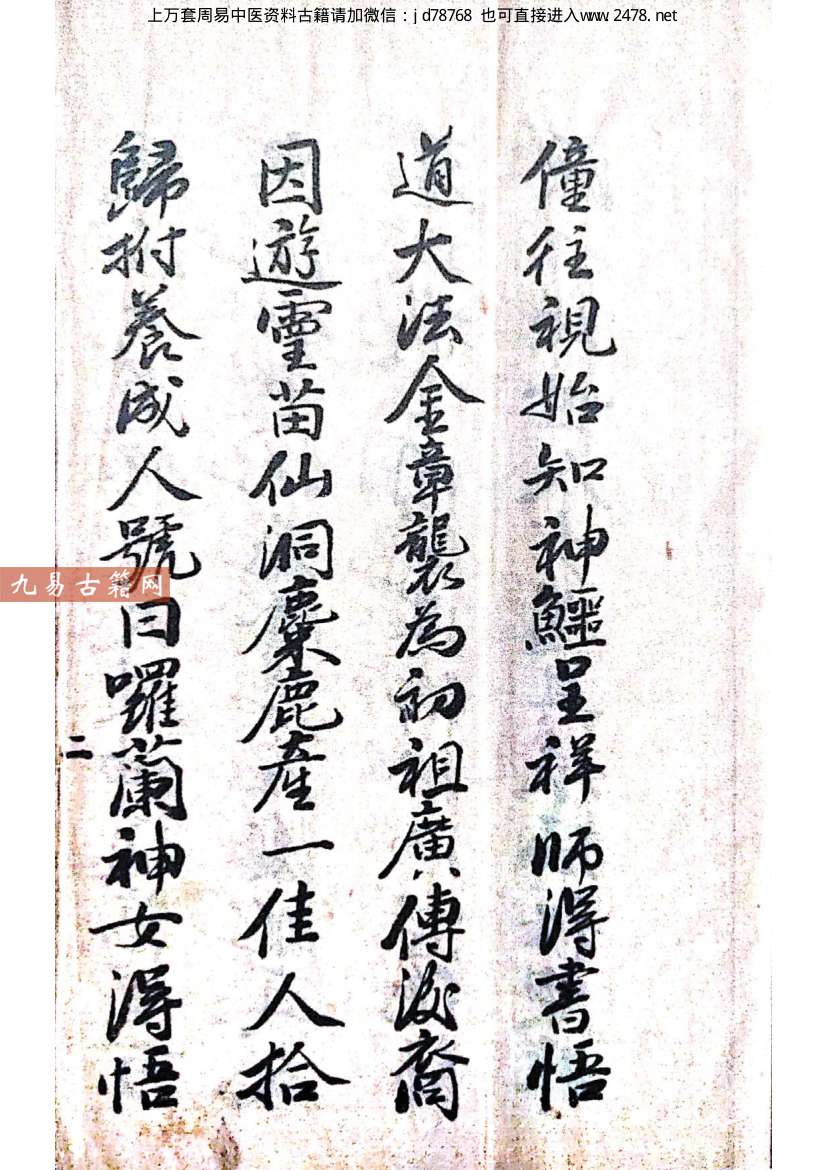 上万套周易中医资料古籍请加微信：jd78768 也可直接进入www.2478.net
僮往視始知神鱷呈祥師得書悟
道大法金章襲為初祖廣傳後裔
因遊霊苗仙洞麋鹿產一佳人拾
歸拊養成人號曰囉蘭神女得悟
九易古籍网
二